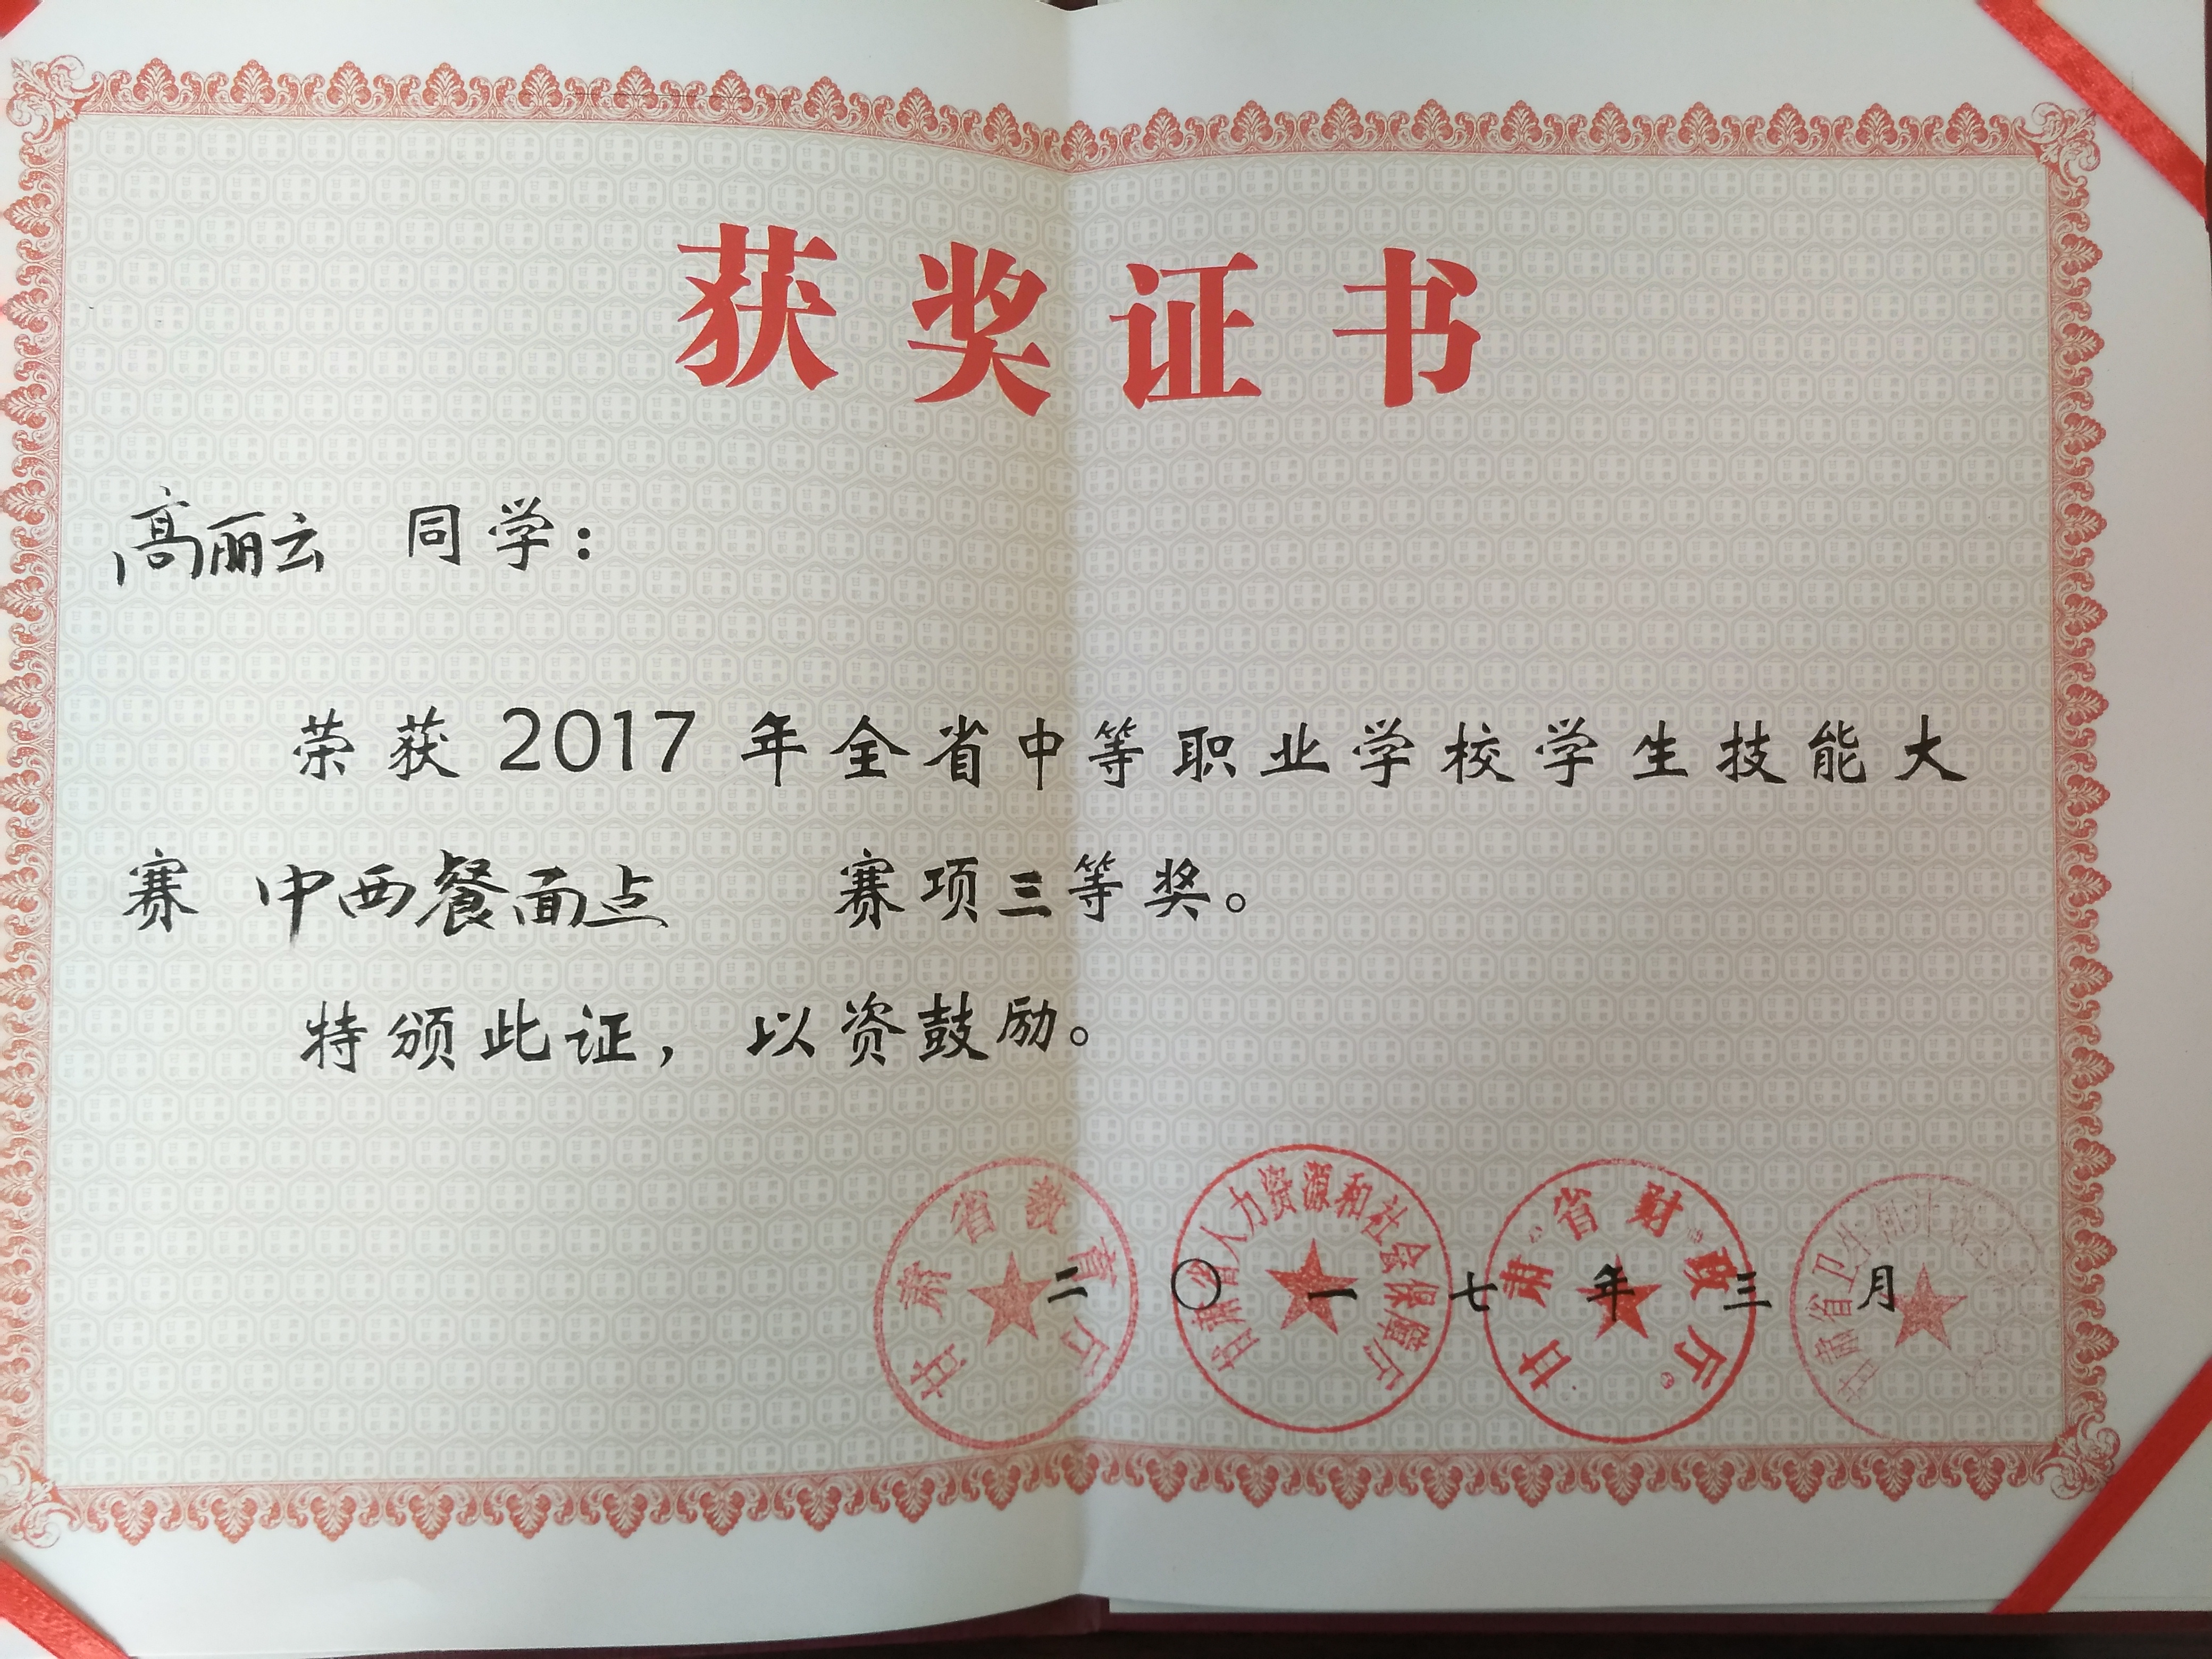 获奖证书
高丽云 同学：
荣获 2017 年全省中等职业学校学生技能大
赛 中西餐面点 赛项三等奖。
特颁此证，以资鼓励。
二〇一七年三月
甘肃省教育厅
甘肃省人力资源和社会保障厅
甘肃省财政厅
甘肃省卫生